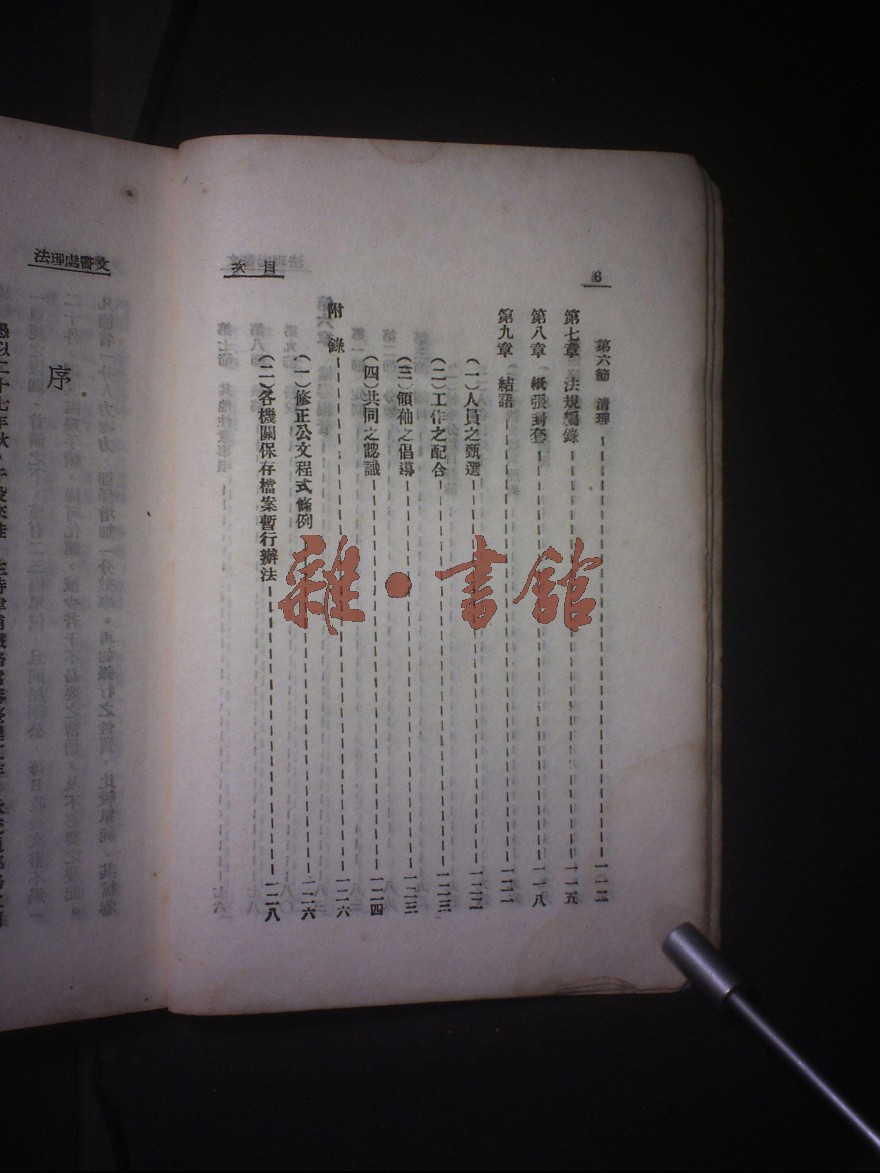 6
目 次
第六節 清理 一一二
第七章 法規編錄 一一五
第八章 紙張封套 一一八
第九章 結語 一二一
(一)人員之甄選 一二二
(二)工作之配合 一二三
(三)領袖之倡導 一二三
(四)共同之認識 一二四
附 錄 一二六
(一)修正公文程式條例 一二六
(二)各機關保存檔案暫行辦法 一二八
雜·書館
法理處書文
序